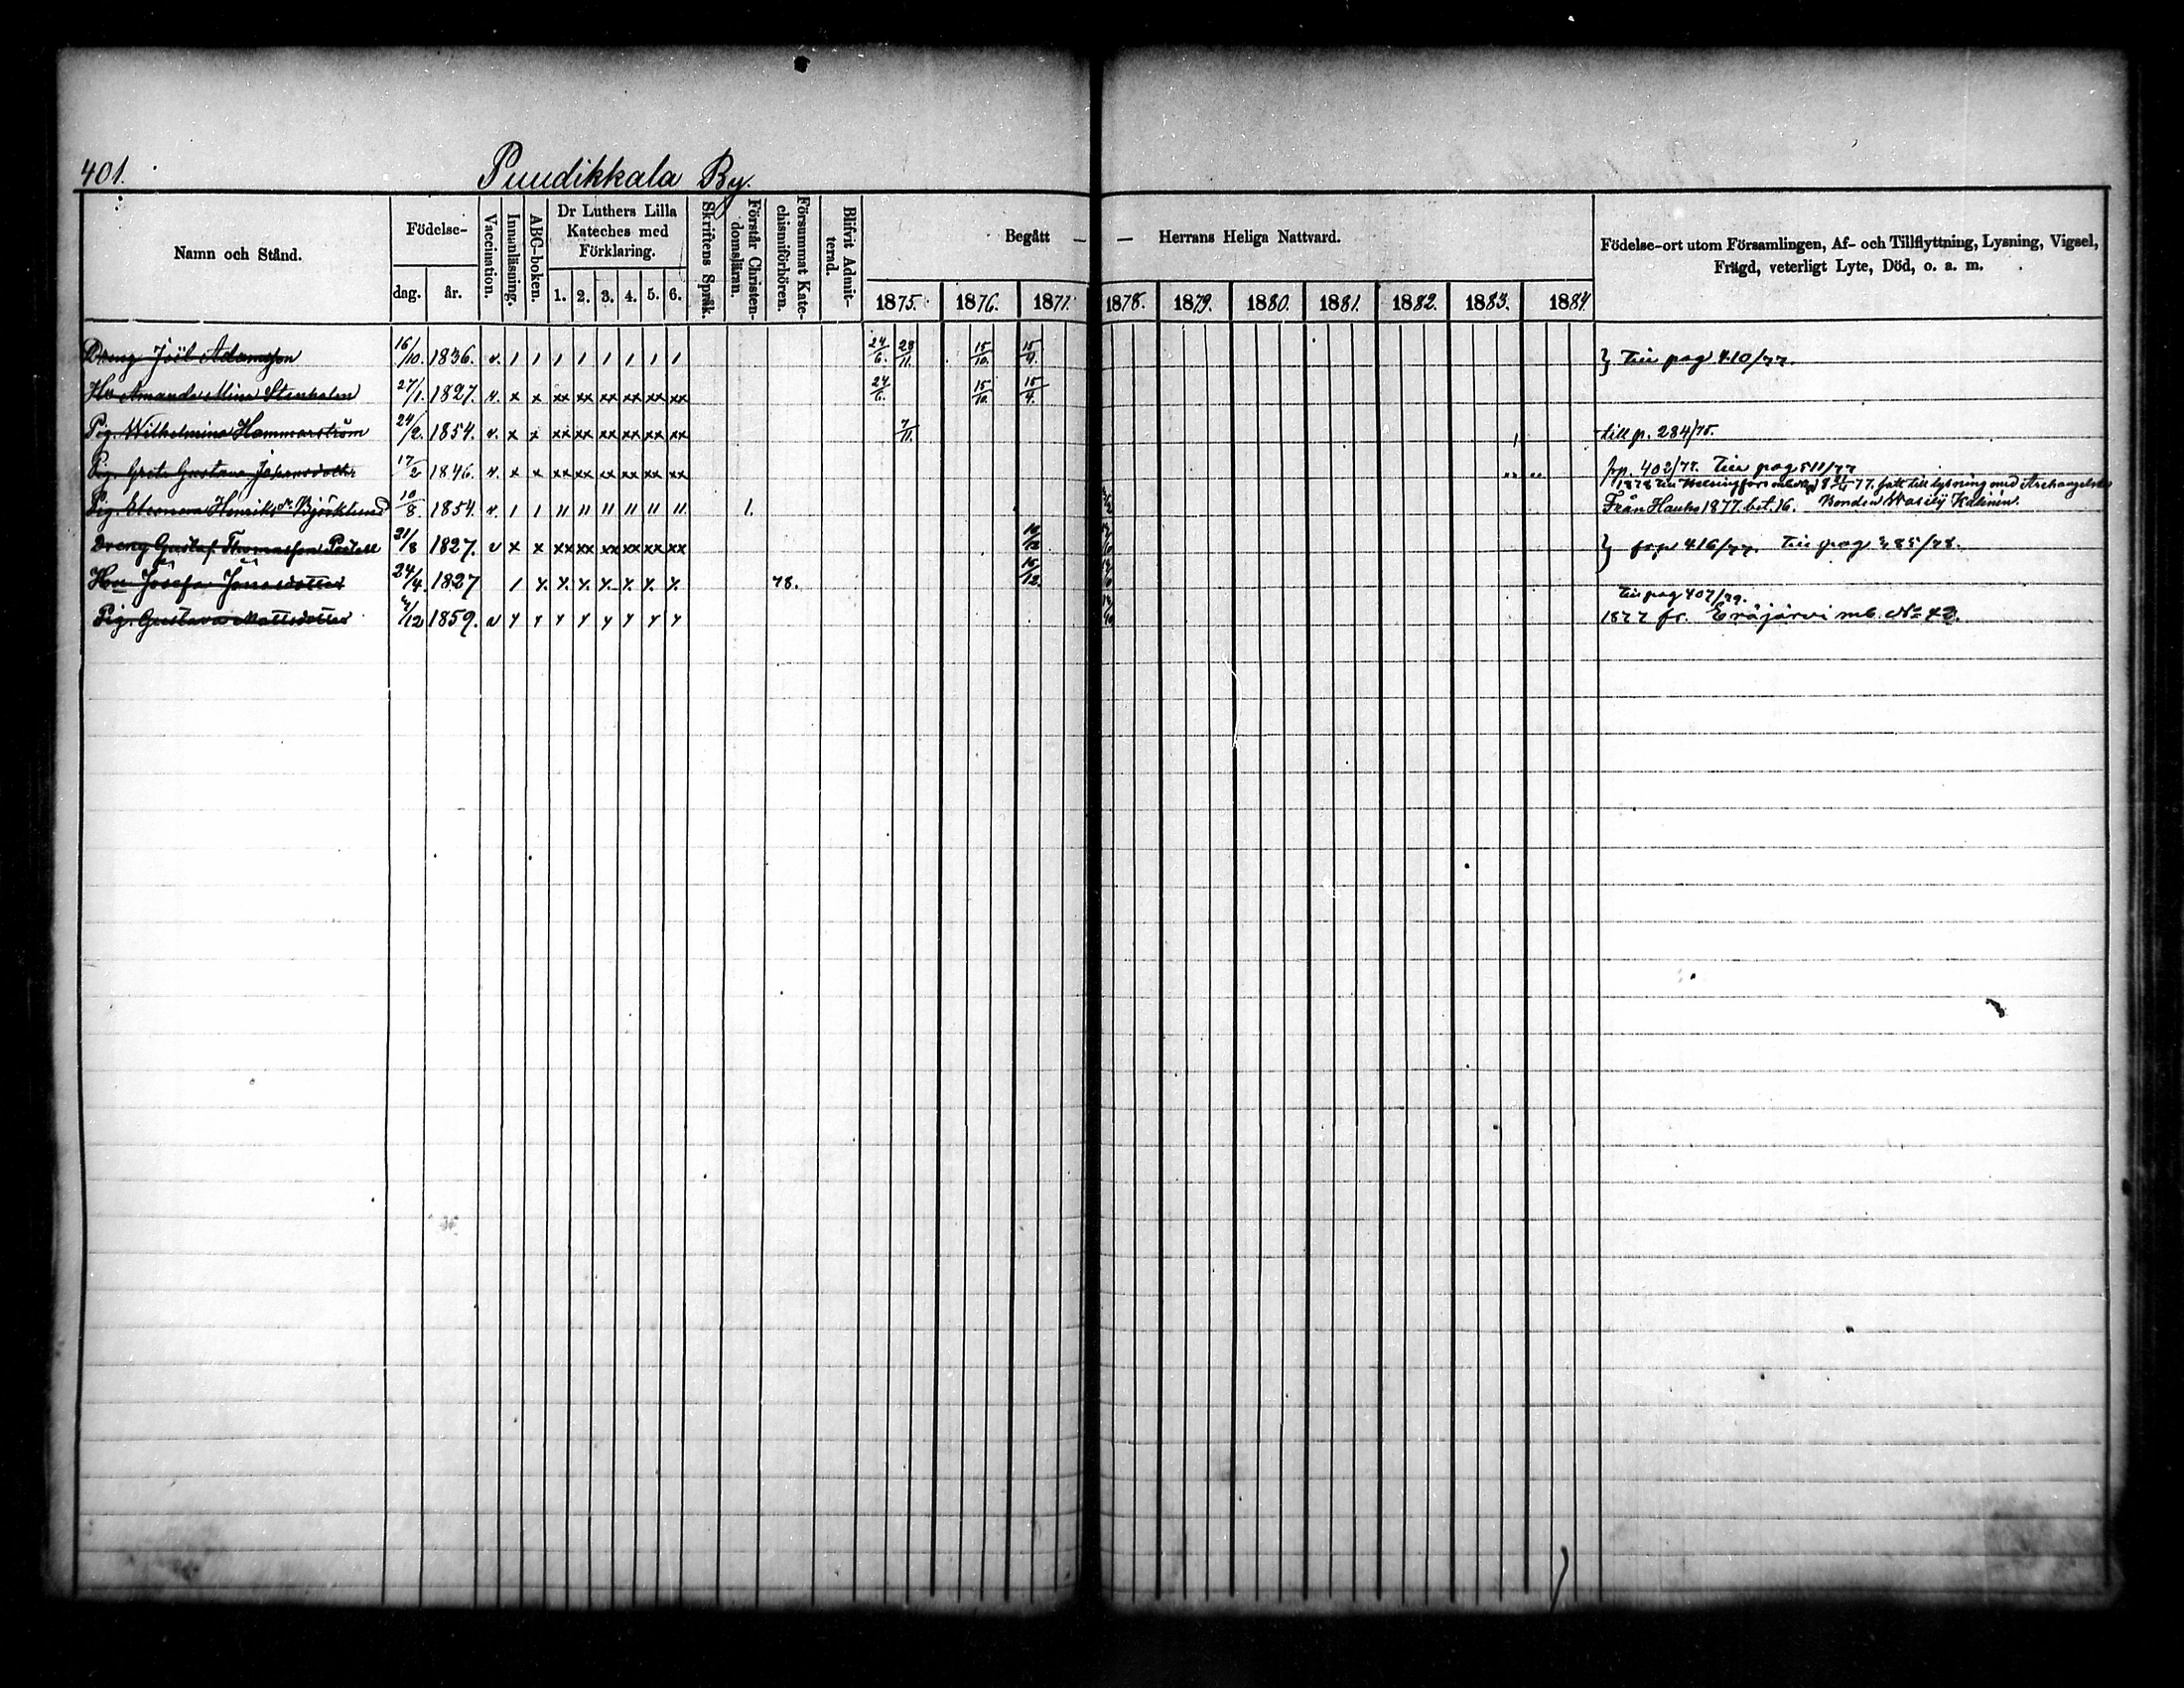 401. Puudikkala By.
Namn och Stånd. Födelse- dag. år. Vaccination. Innanläsning. ABC-boken. Dr Luthers Lilla Kateches med Förklaring. 1. 2. 3. 4. 5. 6. Skriftens Språk. Förstår Christendomsläran. Försummat Katechismiförhören. Blifvit Admitterad. Begått — — Herrans Heliga Nattvard. 1875. 1876. 1877. 1878. 1879. 1880. 1881. 1882. 1883. 1884. Födelse-ort utom Församlingen, Af- och Tillflyttning, Lysning, Vigsel, Frägd, veterligt Lyte, Död, o. a. m.
Dreng Joël Adamsson 16/10. 1836. v. / / / / / / / / 24/6. 28/11. 15/10. 15/4. } Till pag 410/77.
Hu Amanda Mina Stenholm 27/1. 1827. v. x x xx xx xx xx xx xx 24/6. 15/10. 15/4.
Pig. Wilhelmina Hammarström 24/2. 1854. v. x x xx xx xx xx xx xx 7/11. till p. 284/75.
Pig. Greta Gustava Johansdotter 17/2 1846. v. x x xx xx xx xx xx xx frp. 402/77. Till pag 511/77
1878 till Helsingfors 77. fatt till lysning med Archangelska
Pig. Eleonora Henriksdr Björklund 10/8. 1854. v. 1 1 11 11 11 11 11 11 1. Från Hauho 1877. bet. 16. Bonden Wasilij Kalinin.
Dreng Gustaf Thomasson 21/8 1827. v x x xx xx xx xx xx xx 10/12 } frp 416/77. Till pag 385/78.
Hu Josefa Jonasdotter 24/4. 1827 / x x x x x x x 78. 15/12.
Till pag 407/79.
Pig. Gustava Mattsdotter /12 1859. v 1877 fr. Eräjärvi mb. No 43.